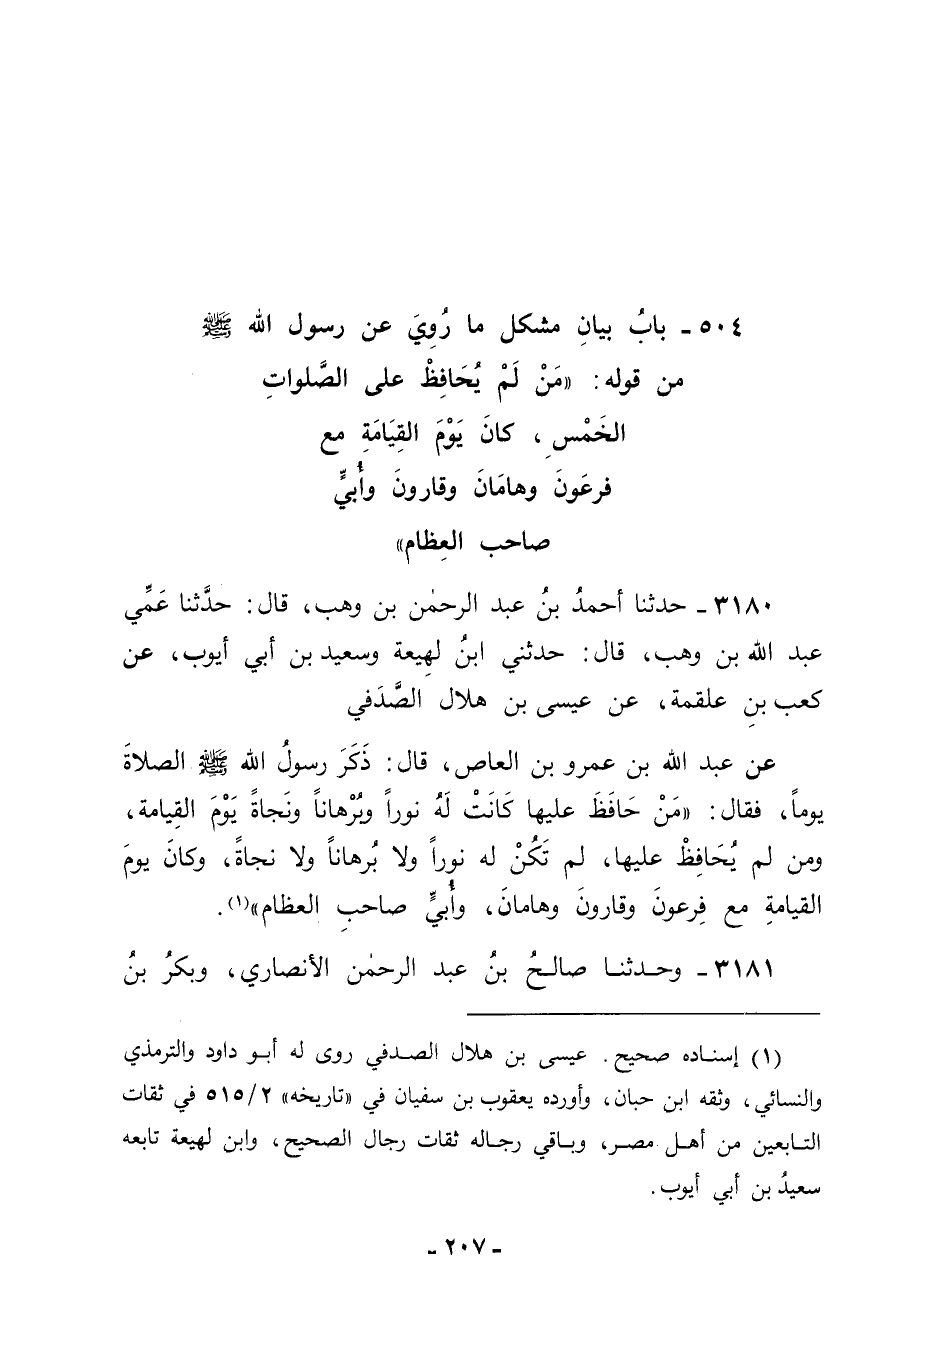 ٥٠٤ - بابُ بيانِ مشكل ما رُوِيَ عن رسول الله ﷺ
من قوله: «مَنْ لَمْ يُحَافِظْ على الصَّلواتِ
الخَمْسِ، كانَ يَوْمَ القِيَامَةِ مع
فرعَونَ وهامَانَ وقارونَ وأُبيٍّ
صاحب العِظام»
٣١٨٠ - حدثنا أحمدُ بنُ عبد الرحمٰن بن وهب، قال: حدَّثنا عَمِّي
عبد الله بن وهب، قال: حدثني ابنُ لهِيعة وسعيد بن أبي أيوب، عن
كعب بنِ علقمة، عن عيسى بن هلال الصَّدَفي
عن عبد الله بن عمرو بن العاص، قال: ذَكَرَ رسولُ الله ﷺ الصلاةَ
يوماً، فقال: «مَنْ حَافَظَ عليها كَانَتْ لَهُ نوراً وبُرْهاناً ونَجاةً يَوْمَ القِيامة،
ومن لم يُحَافِظْ عليها، لم تَكُنْ له نوراً ولا بُرهاناً ولا نجاةً، وكانَ يومَ
القيامةِ مع فِرعونَ وقارونَ وهامانَ، وأُبيٍّ صاحبِ العظام»(١).
٣١٨١ - وحدثنا صالحُ بنُ عبد الرحمٰن الأنصاري، وبكرُ بنُ
(١) إسناده صحيح. عيسى بن هلال الصدفي روى له أبو داود والترمذي
والنسائي، وثقه ابن حبان، وأورده يعقوب بن سفيان في «تاريخه» ٥١٥/٢ في ثقات
التابعين من أهل مصر، وباقي رجاله ثقات رجال الصحيح، وابن لهيعة تابعه
سعيدُ بن أبي أيوب.
- ٢٠٧ -